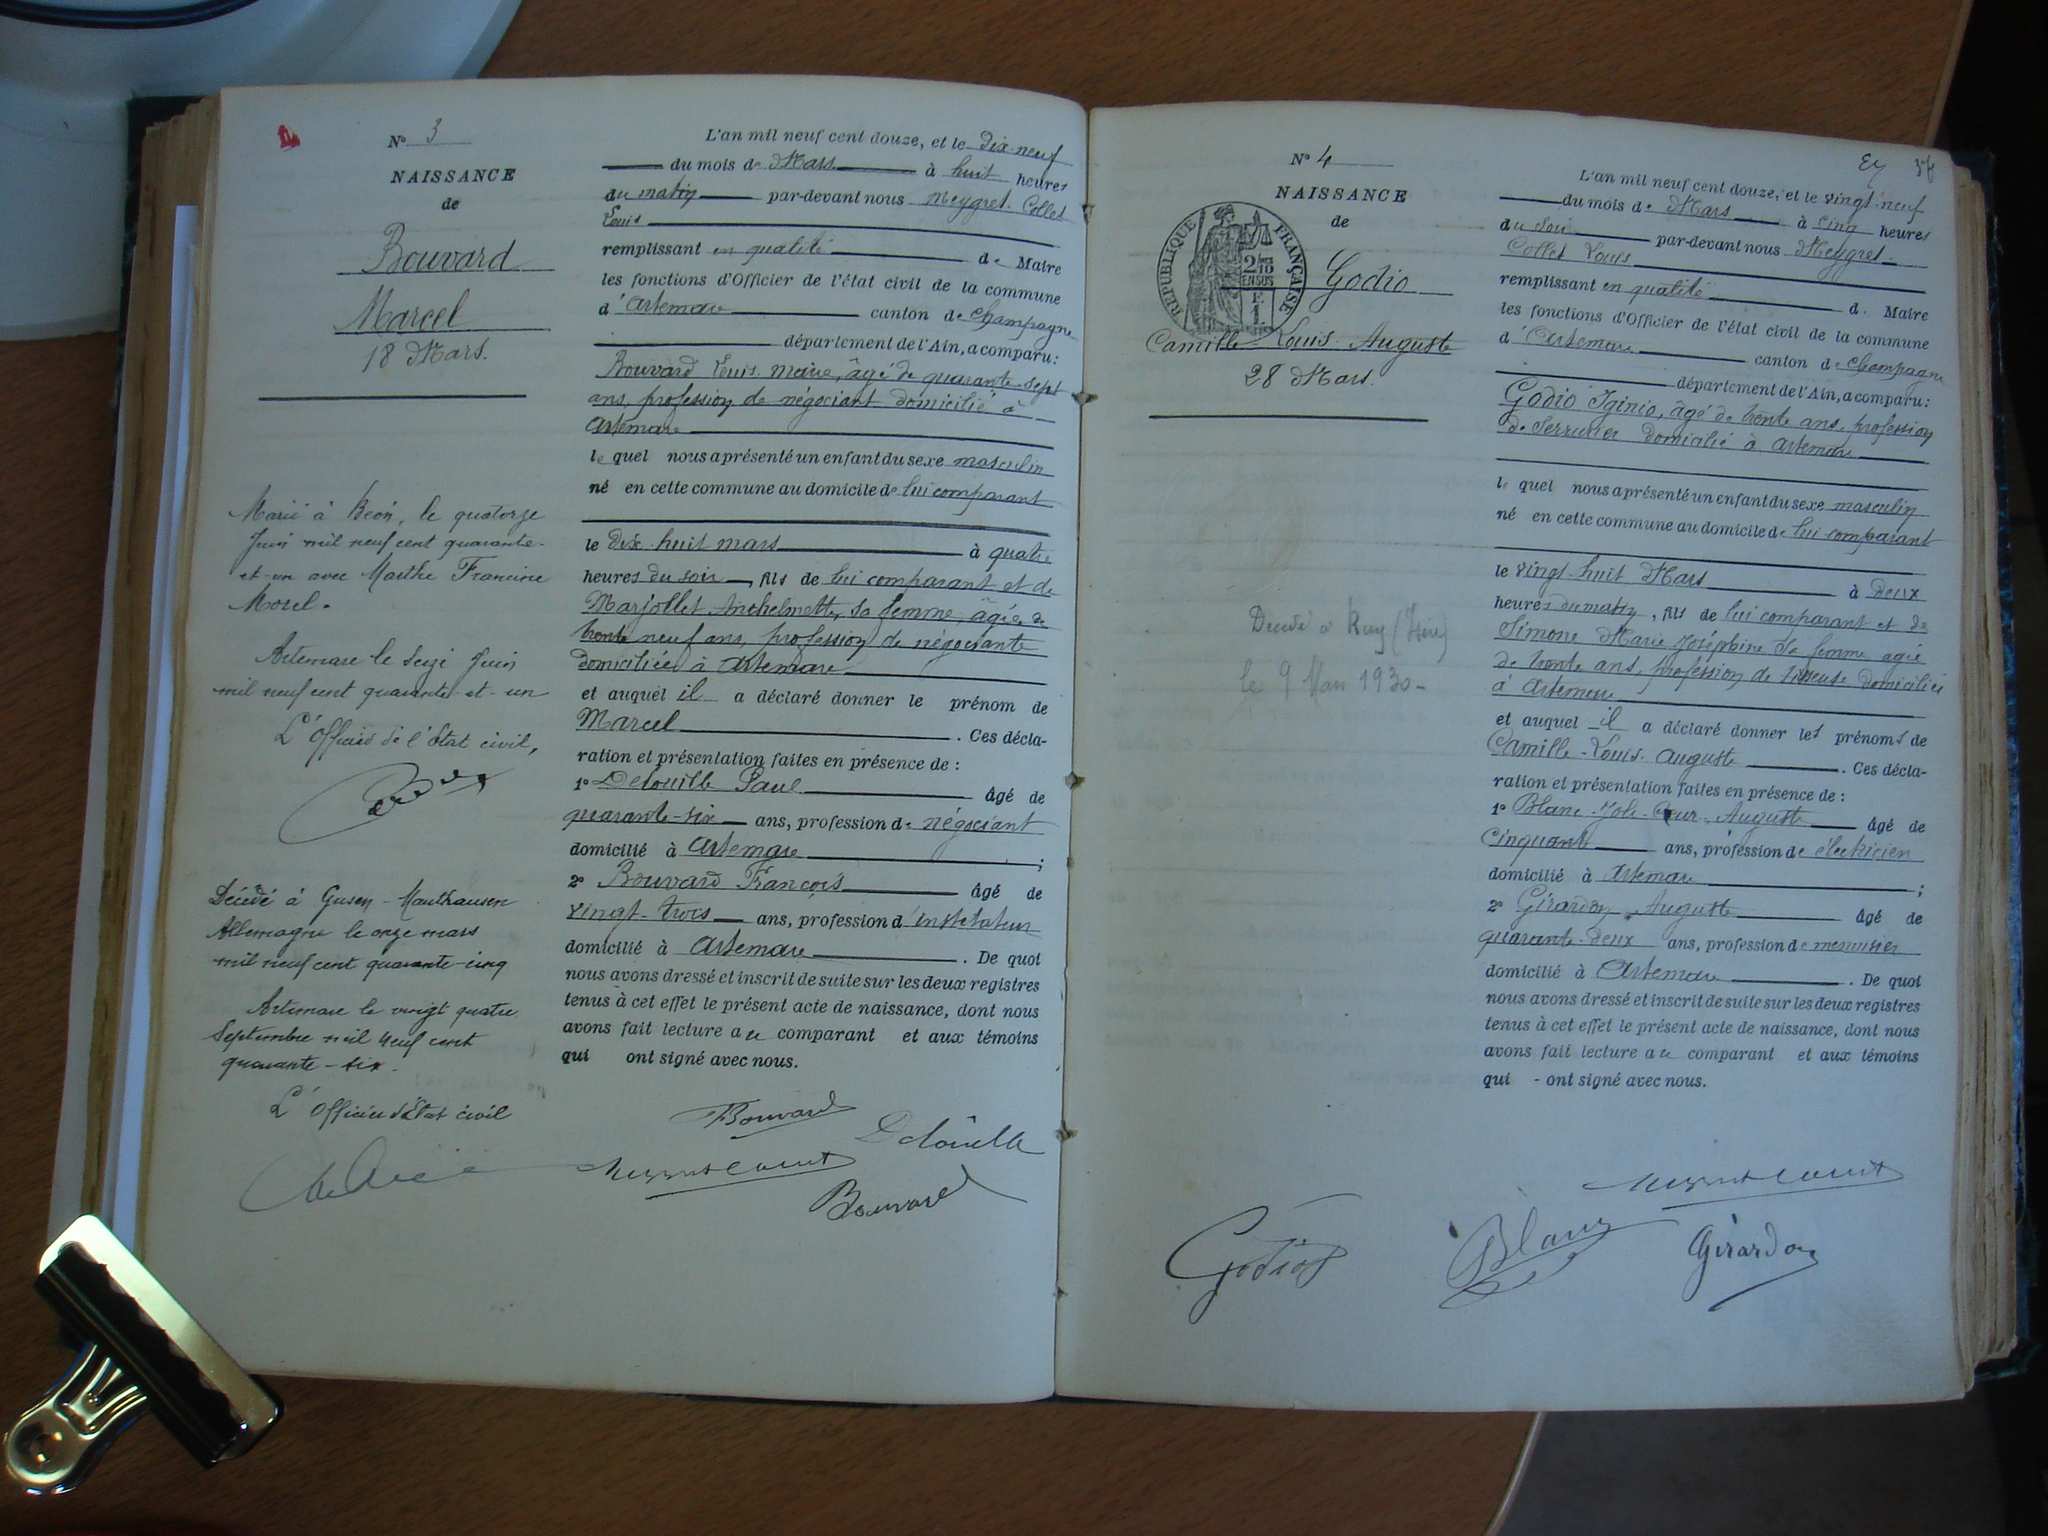 N° 3
NAISSANCE
de
Bouvard
Marcel
18 Mars.
Marié à Béon, le quatorze
Juin mil neuf cent quarante-
et-un avec Marthe Francine
Morel.
Artemare le seize Juin
mil neuf cent quarante-et-un
L'Officier de l'état civil,
Décédé à Gusen-Mauthausen
Allemagne le onze mars
mil neuf cent quarante-cinq
Artemare le vingt quatre
Septembre mil neuf cent
quarante-six.
L'Officier d'Etat civil
L'an mil neuf cent douze, et le dix-neuf
du mois de Mars à huit heures
du matin par-devant nous Meygret-Collet
Louis
remplissant en qualité de Maire
les fonctions d'Officier de l'état civil de la commune
d'Artemare canton de Champagne
département de l'Ain, a comparu:
Bouvard Louis Marie, âgé de quarante-sept
ans, profession de négociant domicilié à
Artemare
lequel nous a présenté un enfant du sexe masculin
né en cette commune au domicile de lui comparant
le dix-huit mars à quatre
heures du soir, fils de lui comparant et de
Marjollet Anthelmette, sa femme, âgée de
trente neuf ans, profession de négociante
domiciliée à Artemare
et auquel il a déclaré donner le prénom de
Marcel. Ces décla-
ration et présentation faites en présence de:
1° Delouille Paul âgé de
quarante-six ans, profession de négociant
domicilié à Artemare;
2° Bouvard François âgé de
vingt-trois ans, profession d'instituteur
domicilié à Artemare. De quoi
nous avons dressé et inscrit de suite sur les deux registres
tenus à cet effet le présent acte de naissance, dont nous
avons fait lecture au comparant et aux témoins
qui ont signé avec nous.
Bouvard
Delouille
Meygret Collet
Bouvard
N° 4
NAISSANCE
de
RÉPUBLIQUE FRANÇAISE
Godio
Camille Louis Auguste
28 Mars.
Décédé à Ruy (Isère)
le 9 Mars 1930-
L'an mil neuf cent douze, et le vingt-neuf
du mois de Mars à cinq heures
du soir par-devant nous Meygret-
Collet Louis
remplissant en qualité de Maire
les fonctions d'Officier de l'état civil de la commune
d'Artemare canton de Champagne
département de l'Ain, a comparu:
Godio Iginio, âgé de trente ans, profession
de serrurier domicilié à Artemare
lequel nous a présenté un enfant du sexe masculin
né en cette commune au domicile de lui comparant
le vingt-huit Mars à deux
heures du matin, fils de lui comparant et de
Simone Marie Joséphine sa femme agée
de trente ans, profession de tisseuse domiciliée
à Artemare
et auquel il a déclaré donner les prénoms de
Camille-Louis-Auguste. Ces décla-
ration et présentation faites en présence de:
1° Blanc-Joli-Cœur Auguste âgé de
cinquante ans, profession de électricien
domicilié à Artemare;
2° Girardon Auguste âgé de
quarante-deux ans, profession de menuisier
domicilié à Artemare. De quoi
nous avons dressé et inscrit de suite sur les deux registres
tenus à cet effet le présent acte de naissance, dont nous
avons fait lecture au comparant et aux témoins
qui - ont signé avec nous.
Meygret Collet
Godio
Blanc
Girardon